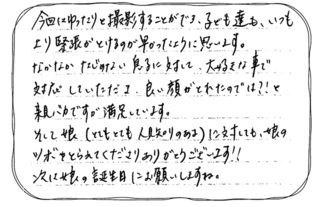 今回はゆったりと撮影することができ、子ども達も、いつも
より緊張がとけるのが早かったように思います。
なかなか　　のない息子に対して、大好きな車で
対応していただき、良い顔がとれたのでは？！と
親バカですが満足しています。
そして娘（とてもとても人見知りのある）に対しても、娘の
ツボをとらえてくださりありがとうございます！！
次は娘の誕生日にお願いしますね。